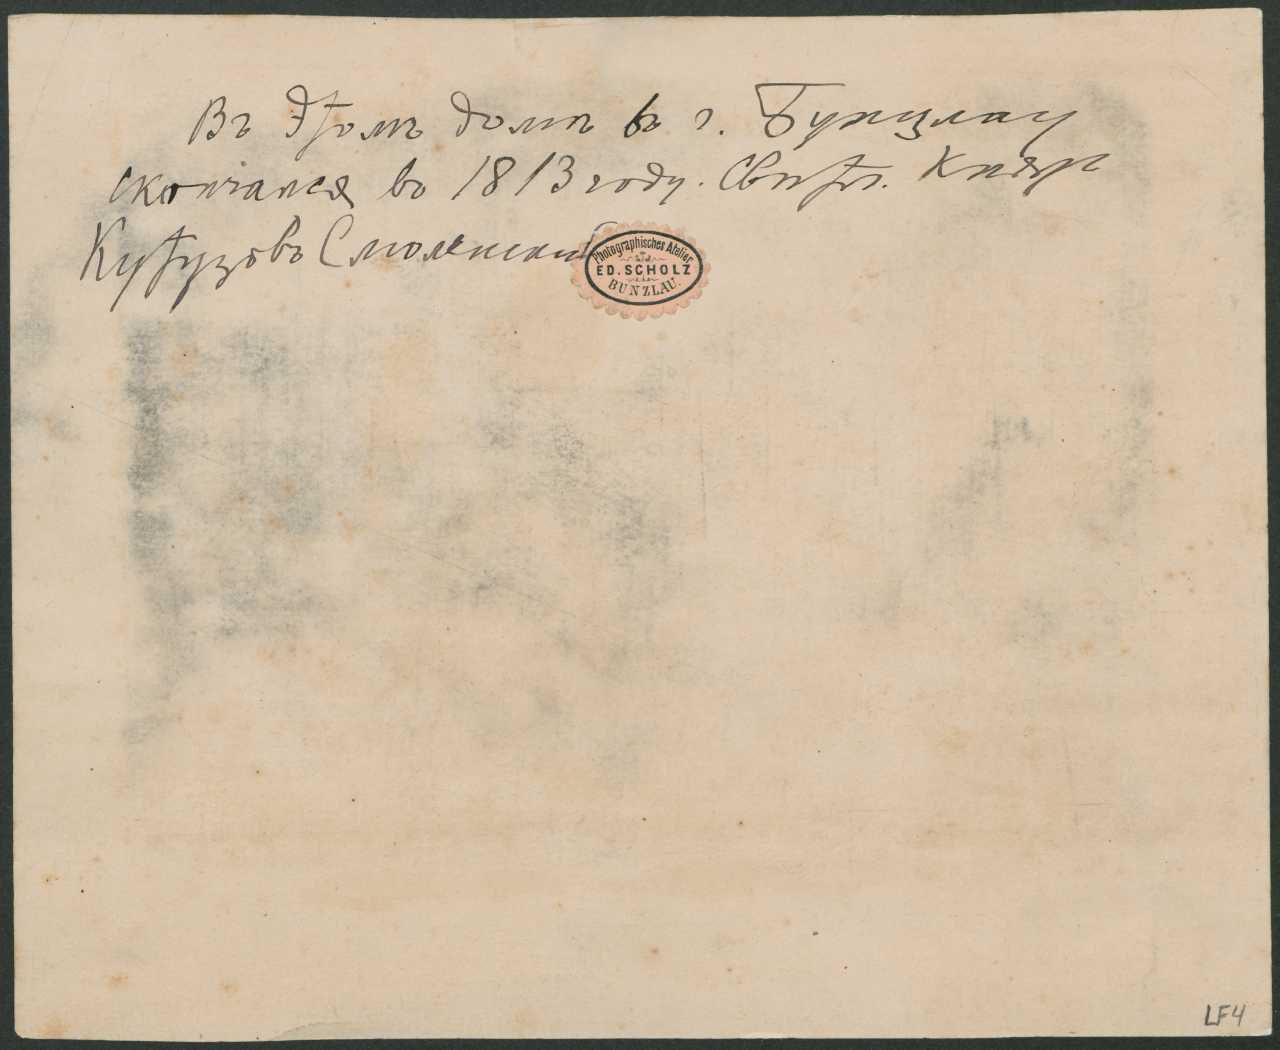 Въ Этомъ домѣ въ г. Бунцлау
скончался во 1813 году. Свѣтл. Князь
Кутузовъ Смоленский
Photographisches Atelier
ED. SCHOLZ
BUNZLAU.
LF4